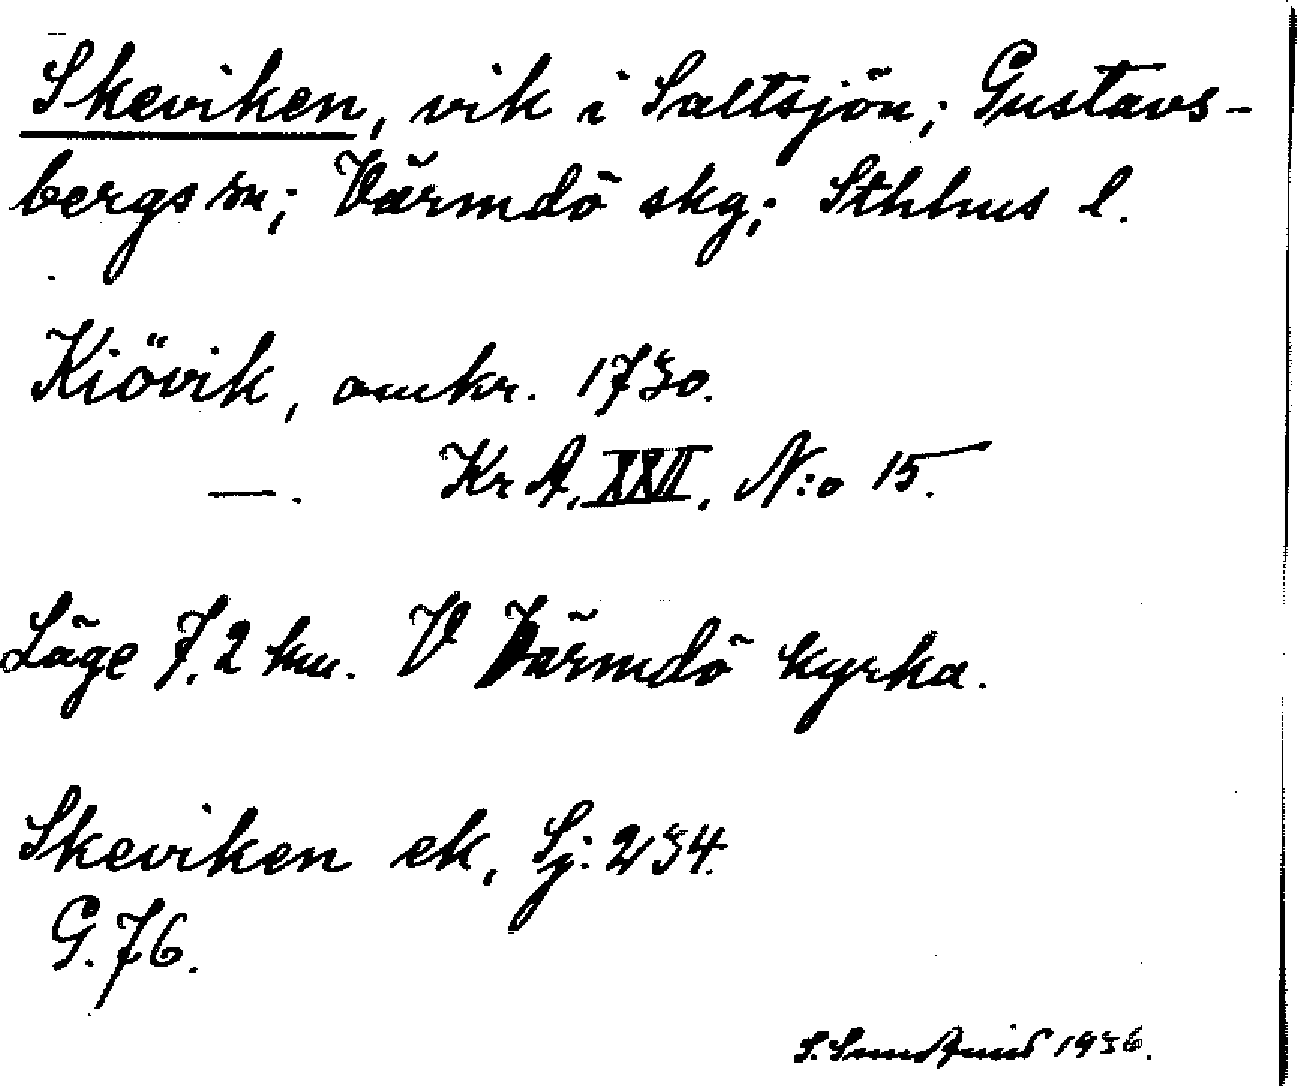 Skeviken, vik i Saltsjön; Gustavs-
bergs sn; Värmdö skg; Sthlms l.
Kiövik, omkr. 1730.
—. KrA. XXII, N:o 15.
Läge 7,2 km. V Värmdö kyrka.
Skeviken ek, Sj: 234.
G. 76.
S. 1936.